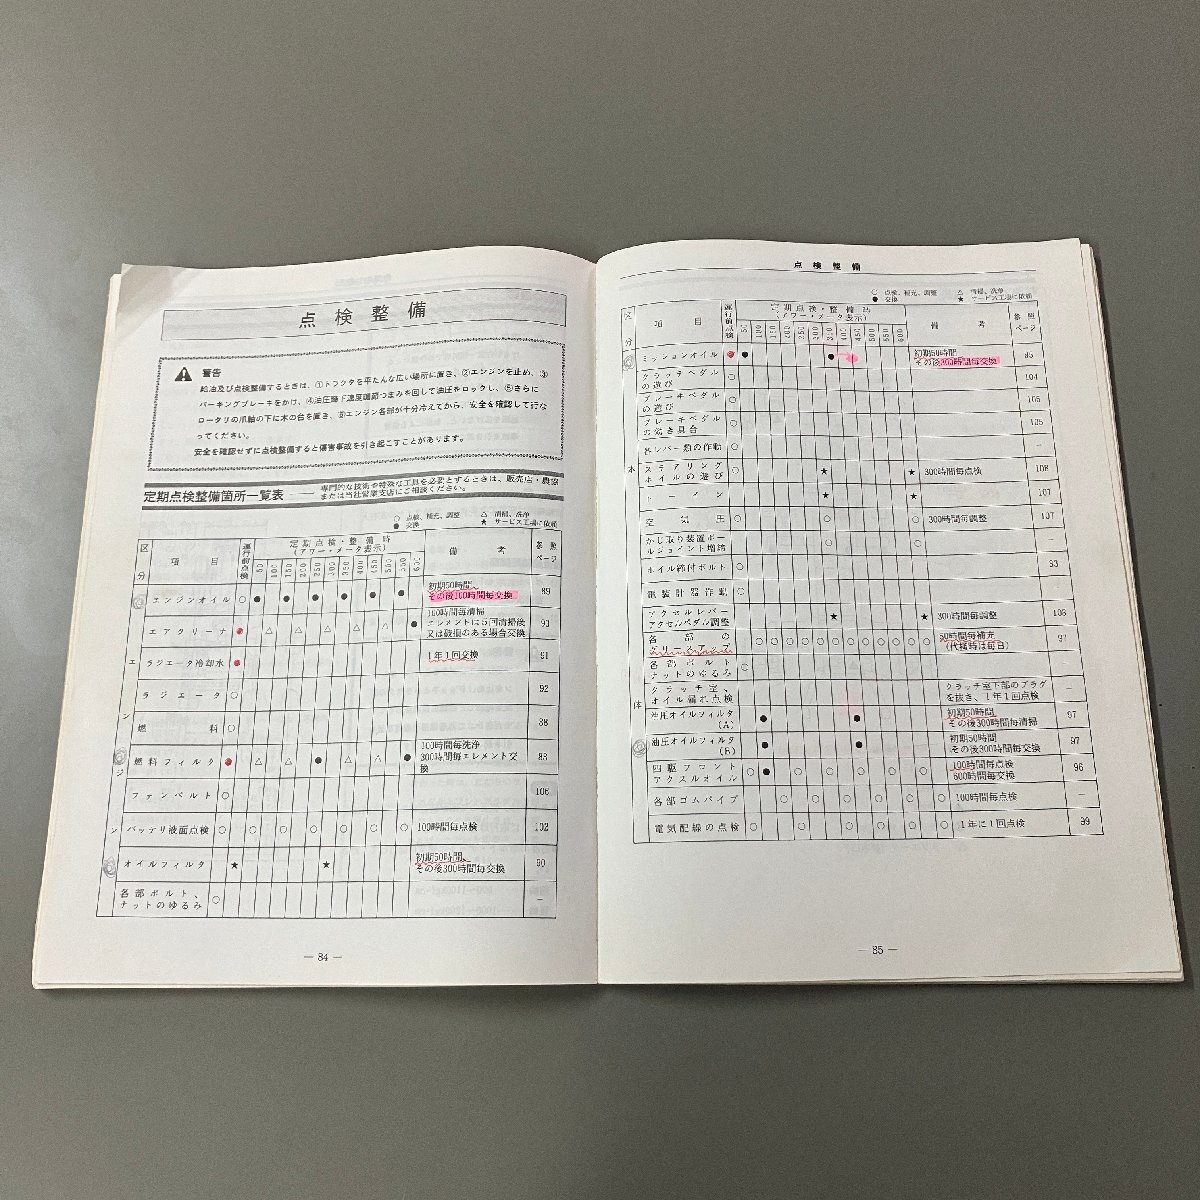 点検整備
警告
給油及び点検整備するときは、①トラクタを平たんな広い場所に置き、②エンジンを止め、③
パーキングブレーキをかけ、④油圧降下速度調節つまみを回して油圧をロックし、⑤さらに
ロータリの爪軸の下に木の台を置き、⑥エンジン各部が十分冷えてから、安全を確認して行な
ってください。
安全を確認せずに点検整備すると傷害事故を引き起こすことがあります。
定期点検整備箇所一覧表
専門的な技術や特殊な工具を必要とするときは、販売店・農協
または当社営業支店にご相談ください。
○ 点検、補充、調整 △ 清掃、洗浄
● 交換 ★ サービス工場に依頼
区分 項目 運行前点検 定期点検・整備時 (アワー・メータ表示) 備考 参照ページ
50 100 150 200 250 300 350 400 450 500 550 600
エンジン
エンジンオイル ○ ● ● ● ● ● ● 初期50時間、
その後100時間毎交換 89
エアクリーナ ● △ △ △ △ △ ● 100時間毎清掃
エレメントは5回清掃後
又は破損のある場合交換 93
ラジエータ冷却水 ● 1年1回交換 91
ラジエータ ○ 92
燃料 ○ 88
燃料フィルタ ● △ △ ● △ △ ● 100時間毎洗浄
300時間毎エレメント交
換 88
ファンベルト ○ 106
バッテリ液面点検 ○ ○ ○ ○ ○ ○ ○ 100時間毎点検 102
オイルフィルタ ★ ★ 初期50時間、
その後300時間毎交換 90
各部ボルト、
ナットのゆるみ ○ －
― 84 ―
点検整備
○ 点検、補充、調整 △ 清掃、洗浄
● 交換 ★ サービス工場に依頼
区分 項目 運行前点検 定期点検・整備時 (アワー・メータ表示) 備考 参照ページ
50 100 150 200 250 300 350 400 450 500 550 600
本体
ミッションオイル ● ● ● 初期50時間
その後300時間毎交換 95
クラッチペダル
の遊び ○ 104
ブレーキペダル
の遊び ○ 105
ブレーキペダル
の効き具合 ○ 105
各レバー類の作動 ○ －
ステアリング
ホイルの遊び ○ ★ ★ 300時間毎点検 108
トーイン ★ ★ 107
空気圧 ○ ○ ○ 300時間毎調整 107
かじ取り装置ボー
ルジョイント増締 ○ ○ －
ホイル締付ボルト ○ 53
電装計器作動 ○
アクセルレバー
アクセルペダル調整 ★ ★ 300時間毎調整 106
各部の
グリースアップ ○ ○ ○ ○ ○ ○ ○ ○ ○ ○ ○ ○ 50時間毎補充
(代掻時は毎日) 97
各部ボルト
ナットのゆるみ ○
クラッチ室、
オイル漏れ点検 クラッチ室下部のプラグ
を抜き、1年1回点検 －
油圧オイルフィルタ
(A) ● ● 初期50時間
その後300時間毎清掃 97
油圧オイルフィルタ
(B) ● ● 初期50時間
その後300時間毎交換 97
四駆フロント
アクスルオイル ○ ● ○ ○ ○ ○ ○ 100時間毎点検
600時間毎交換 96
各部ゴムパイプ ○ ○ ○ ○ ○ ○ 100時間毎点検 －
電気配線の点検 ○ ○ ○ ○ ○ ○ 1年に1回点検 99
― 85 ―